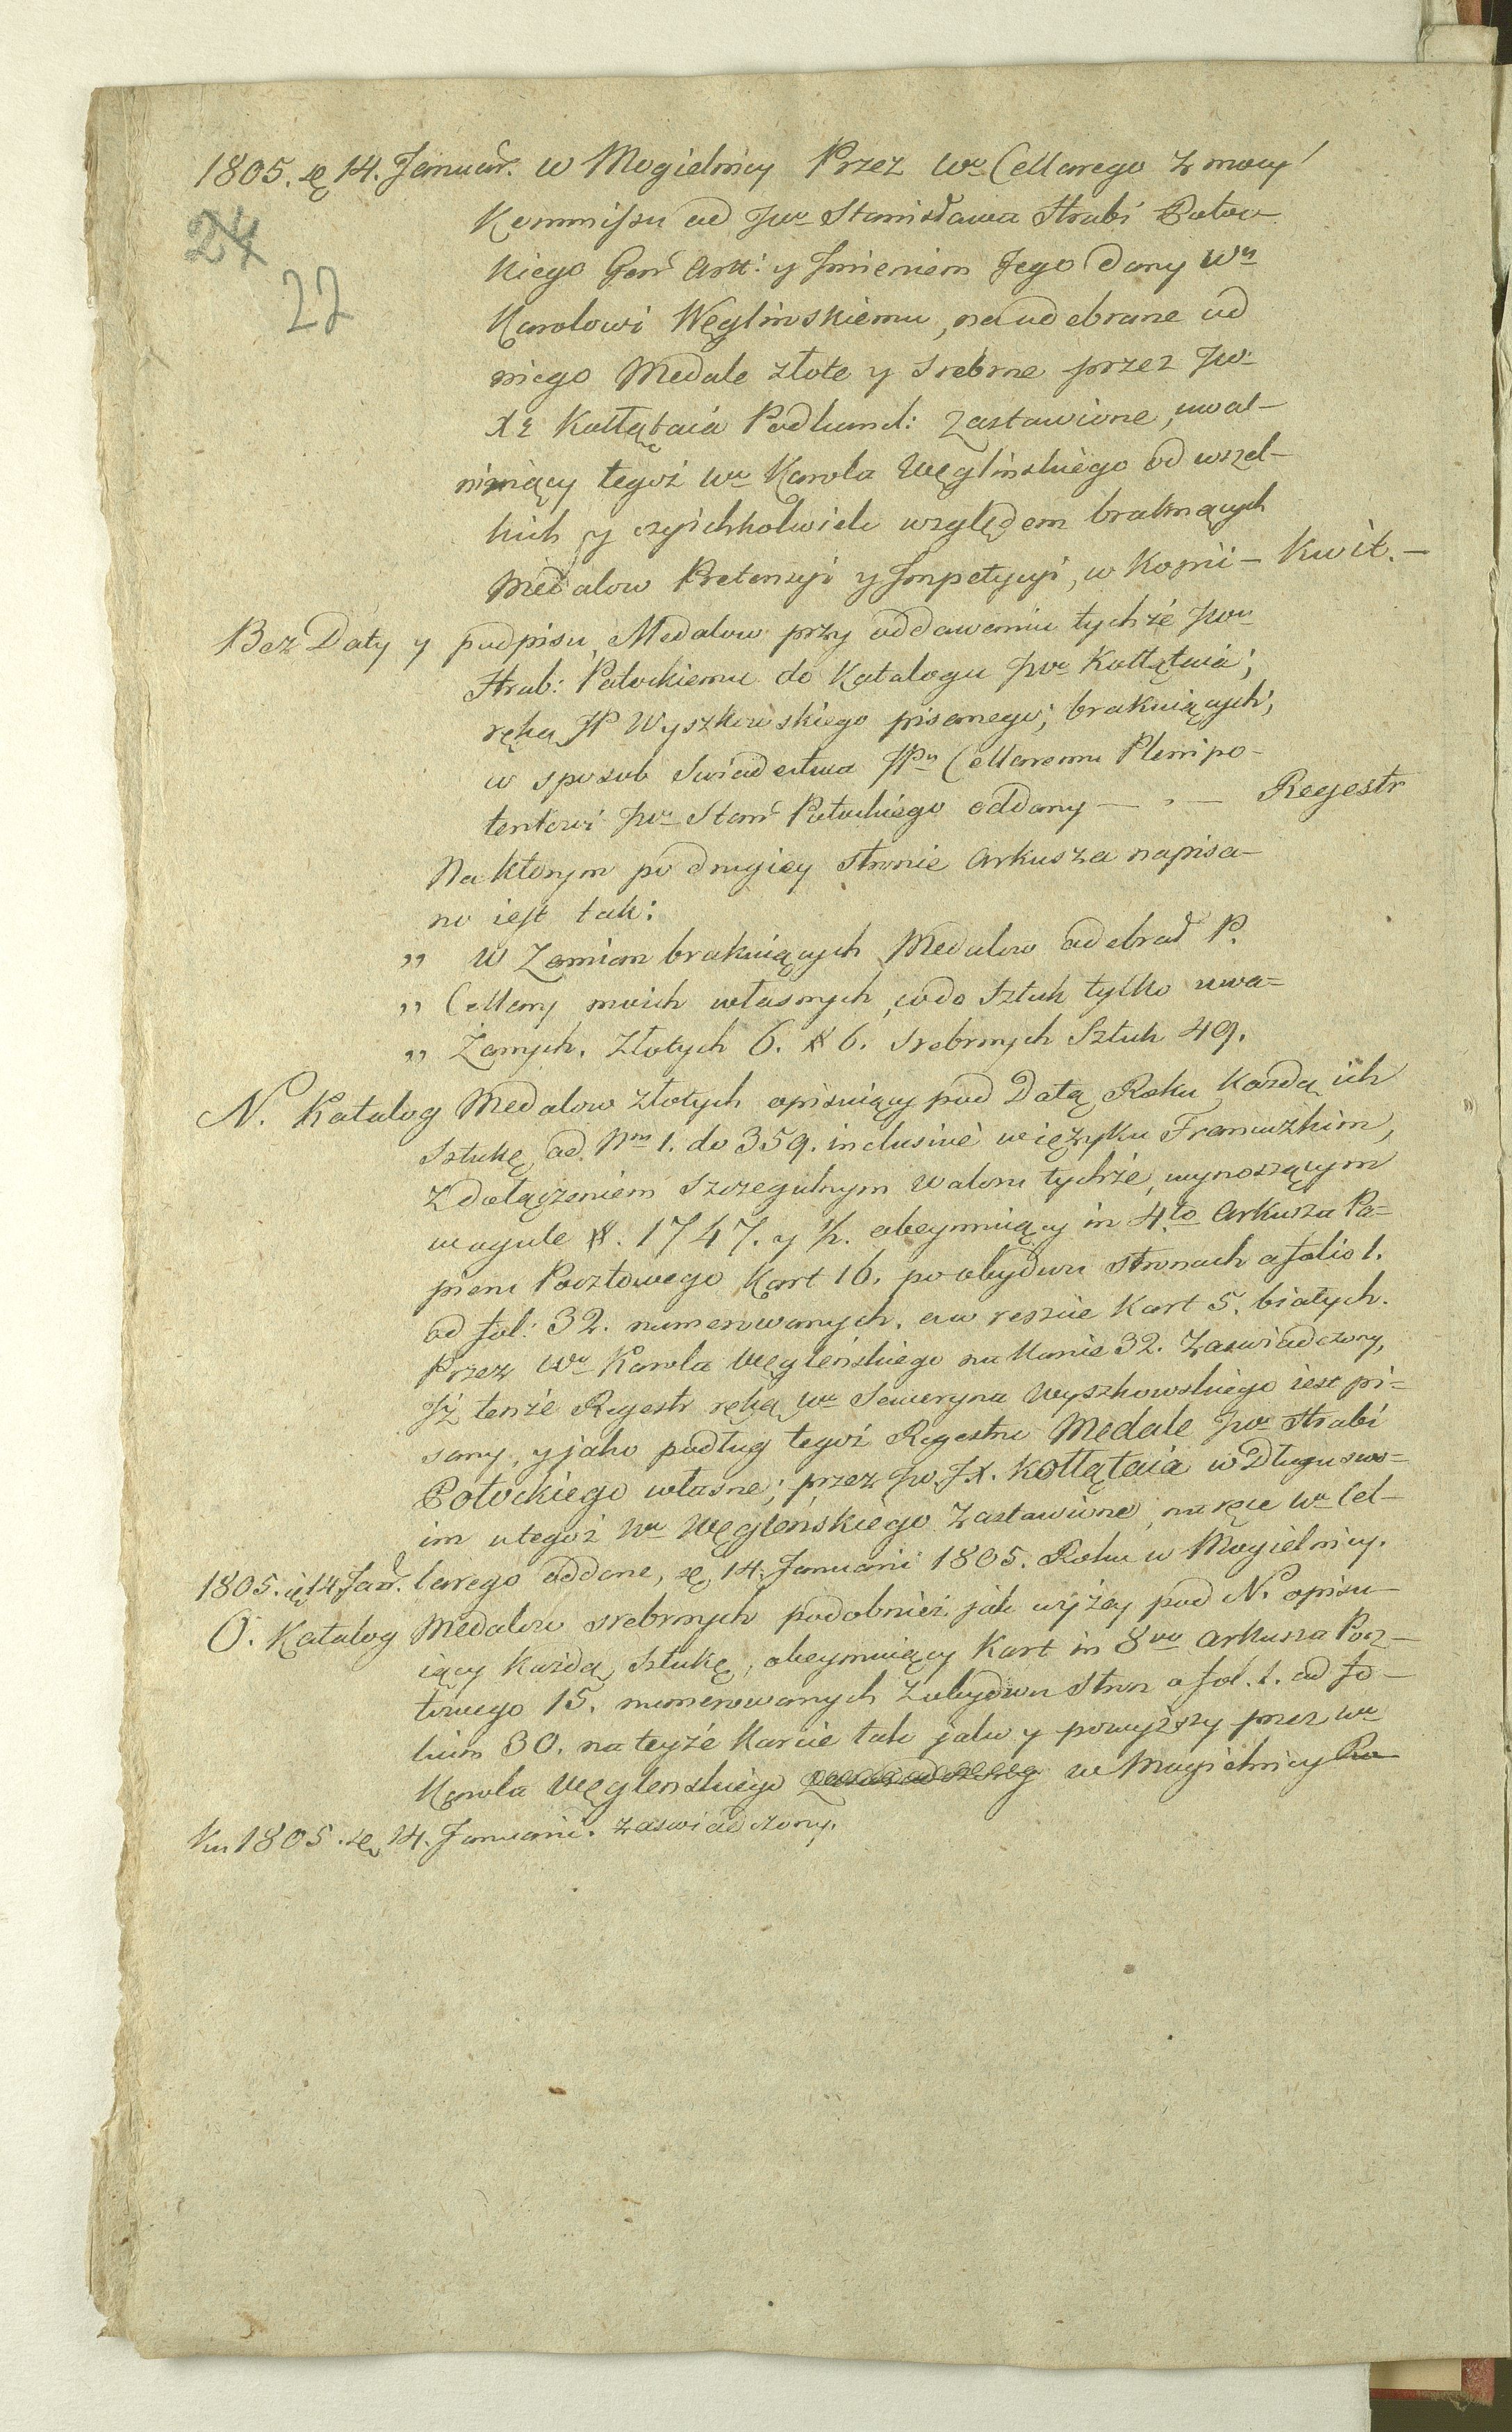 1805. dę 14. Januar. w Mogielnicy Przez Wo Cellarego z mocy
24
22
Kommissu od Jwo Stanisława Hrabi Potoc-
kiego Genr Artt: y Jmieniem Jego dany Wu
Karolowi Węglinskiemu, na odebrane od
niego Medale złote y srebrne przez Jwo
Xę Kołłątaia Podkancl: Zastawione, uwal-
niaiący tegoż Wo Karola Węglinskiego od wszel-
kich y czyichkolwiek względem braknących
Medalow Pretensyi y Jmpetycyi, w Kopii - Kwit. -
Bez Daty y podpisu, Medalow przy oddawaniu tychże Jwu
Hrab: Potockiemu do Katalogu Jwo Kołłątaia,
ręką JP Wyszkowskiego pisanego, brakuiących,
w sposob Swiadectwa JPu Cellaremu Plenipo-
tentowi Jwo Stanr Potockiego oddany - - - Regestr
Na ktorym po drugiey stronie Arkusza napisa-
no iest tak:
„ W Zamian brakuiących Medalow odebrał P.
„ Cellary moich własnych, co do Sztuk tylko uwa=
„ żanych. Złotych 6. # 6. Srebrnych Sztuk 49.
N. Katalog Medalow złotych opisuiący pod Datą Roku każdą ich
Sztukę, od Nro 1. do 359. inclusivè w ięzyku Francuzkim,
z dołączeniem szczegulnym waloru tychże, wynoszącym
w ogule #. 1747. y ½. obeymuiący in 4.to Arkusza Pa=
pieru Pocztowego Kart 16. po obydwu stronach a folio 1.
ad fol: 32. numerowanych. a w reszcie Kart 5. białych.
Przez Wo Karola Węgleńskiego na Karcie 32. Zaswiadczony,
Jż tenże Regestr ręką Wo Seweryna Wyszkowskiego iest pi=
sany, y jako podług tegoż Regestru Medale Jwo Hrabi
Potockiego własne; przez Jw. JX. Kołłątaia w Długu swo=
im u tegoż Wo Węgleńskiego Zastawione, na ręce Wo Cel-
1805. dę 14. Janr. larego oddane, dę 14. Januarii 1805. Roku w Mogielnicy.
O. Katalog Medalow srebrnych podobnież jak wyżey pod N. opisu-
iący każdą, Sztukę, obeymuiący Kart in 8vo Arkusza Pocz-
towego 15. numerowanych z obydwu Stron a fol. 1. ad fo-
lium 30. na teyże Karcie tak jako y powyższy przez Wo
Karola Węgleńskiego zaswiadczony w Mogielnicy Ro
ku 1805. dę 14. Januarii. zaswiadczony.